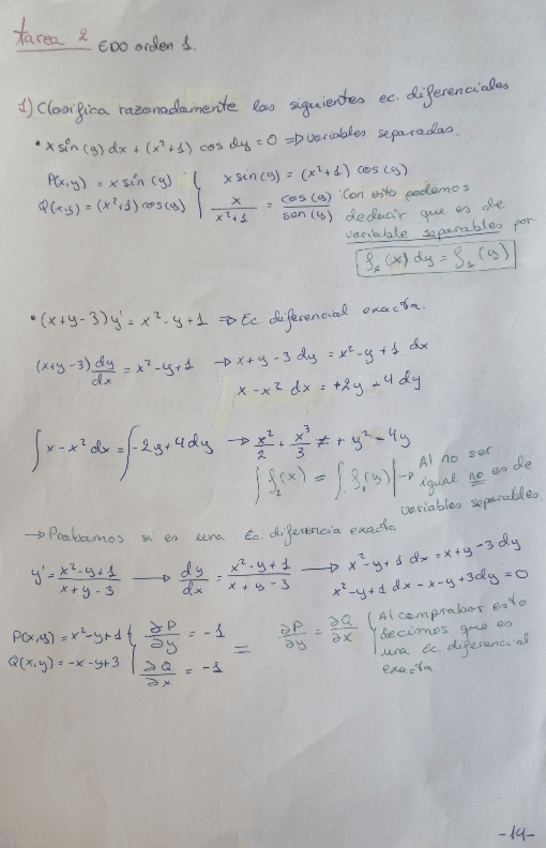 tarea 2 EDO orden 1.
1) Clasifica razonadamente las siguientes ec. diferenciales
• x sin (y) dx + (x²+1) cos dy = 0 ⇒ variables separadas.
P(x,y) = x sin (y) { x sin(y) = (x²+1) cos(y)
Q(x,y) = (x²+1) cos(y) | x/(x²+1) = cos(y)/sen(y) Con esto podemos
deducir que es de
variable separables por
f₂(x) dy = f₁(y)
• (x+y-3)y' = x²-y+1 ⇒ Ec. diferencial exacta.
(x+y-3) dy/dx = x²-y+1 → x+y-3 dy = x²-y+1 dx
x-x² dx = +2y-4 dy
∫x-x² dx = ∫-2y+4 dy → x²/2 + x³/3 ≠ + y²-4y
∫f₂(x) = ∫f₁(y) | → Al no ser
igual no es de
variables separables
→ Probamos si es una Ec. diferencia exacta
y' = (x²-y+1)/(x+y-3) → dy/dx = (x²-y+1)/(x+y-3) → x²-y+1 dx = x+y-3 dy
x²-y+1 dx -x-y+3 dy = 0
P(x,y) = x²-y+1 { ∂P/∂y = -1 = ∂P/∂y = ∂Q/∂x { Al comprobar esto
Q(x,y) = -x-y+3 { ∂Q/∂x = -1 decimos que es
una Ec diferencial
exacta.
-14-